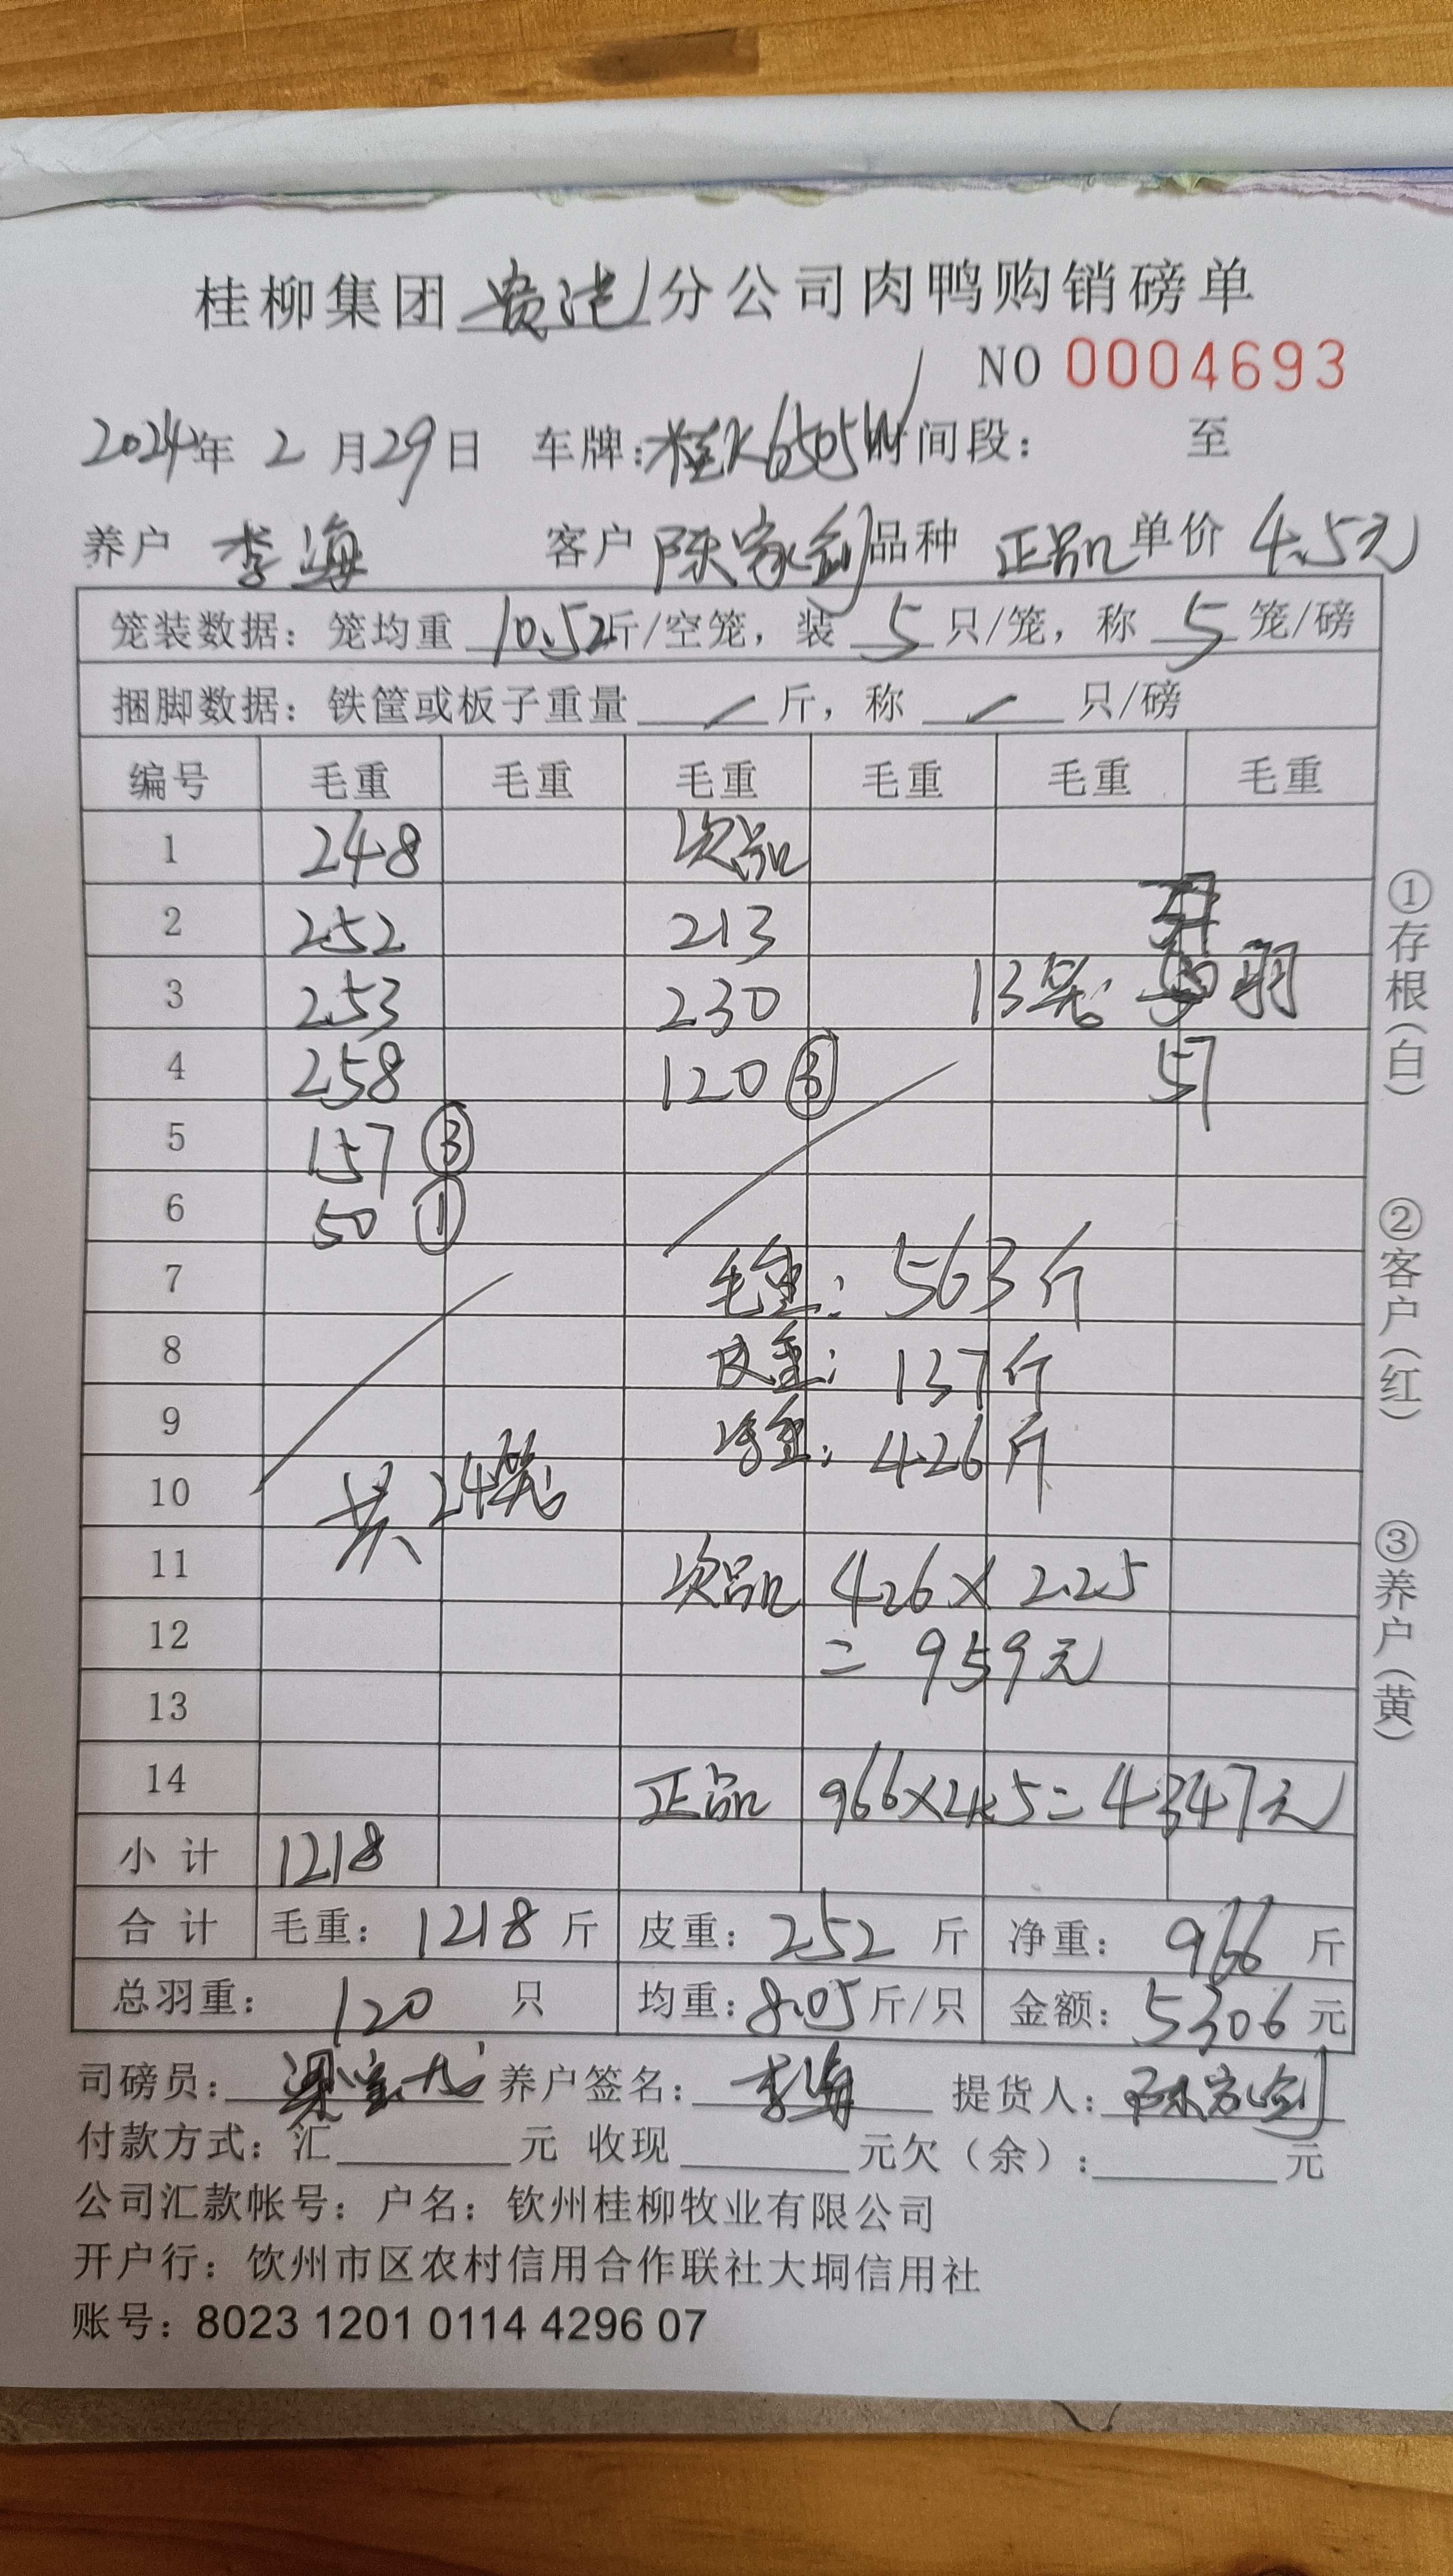 桂柳集团贵港分公司肉鸭购销磅单
NO 0004693
2024年 2 月29日 车牌:桂K6505W时间段: 至
养户 李海 客户 陈家剑 品种 正品 单价 4.5元
笼装数据: 笼均重 10.52斤/空笼, 装 5 只/笼, 称 5 笼/磅
捆脚数据: 铁筐或板子重量 / 斤, 称 / 只/磅
编号 毛重 毛重 毛重 毛重 毛重 毛重
1 248 次品
2 252 213
3 253 230 13笼 羽
4 258 120 ③ 57
5 157 ③
6 50 ①
7 毛重: 563斤
8 皮重: 137斤
9 净重: 426斤
10 共24笼
11 次品 426×2.25
12 = 959元
13
14 正品 966×4.5=4347元
小计 1218
合计 毛重: 1218 斤 皮重: 252 斤 净重: 966 斤
总羽重: 120 只 均重: 8.05 斤/只 金额: 5306 元
司磅员: 养户签名: 李海 提货人: 陈家剑
付款方式: 汇 元 收现 元欠(余): 元
公司汇款帐号: 户名: 钦州桂柳牧业有限公司
开户行: 饮州市区农村信用合作联社大垌信用社
账号: 8023 1201 0114 4296 07
①存根(白)
②客户(红)
③养户(黄)